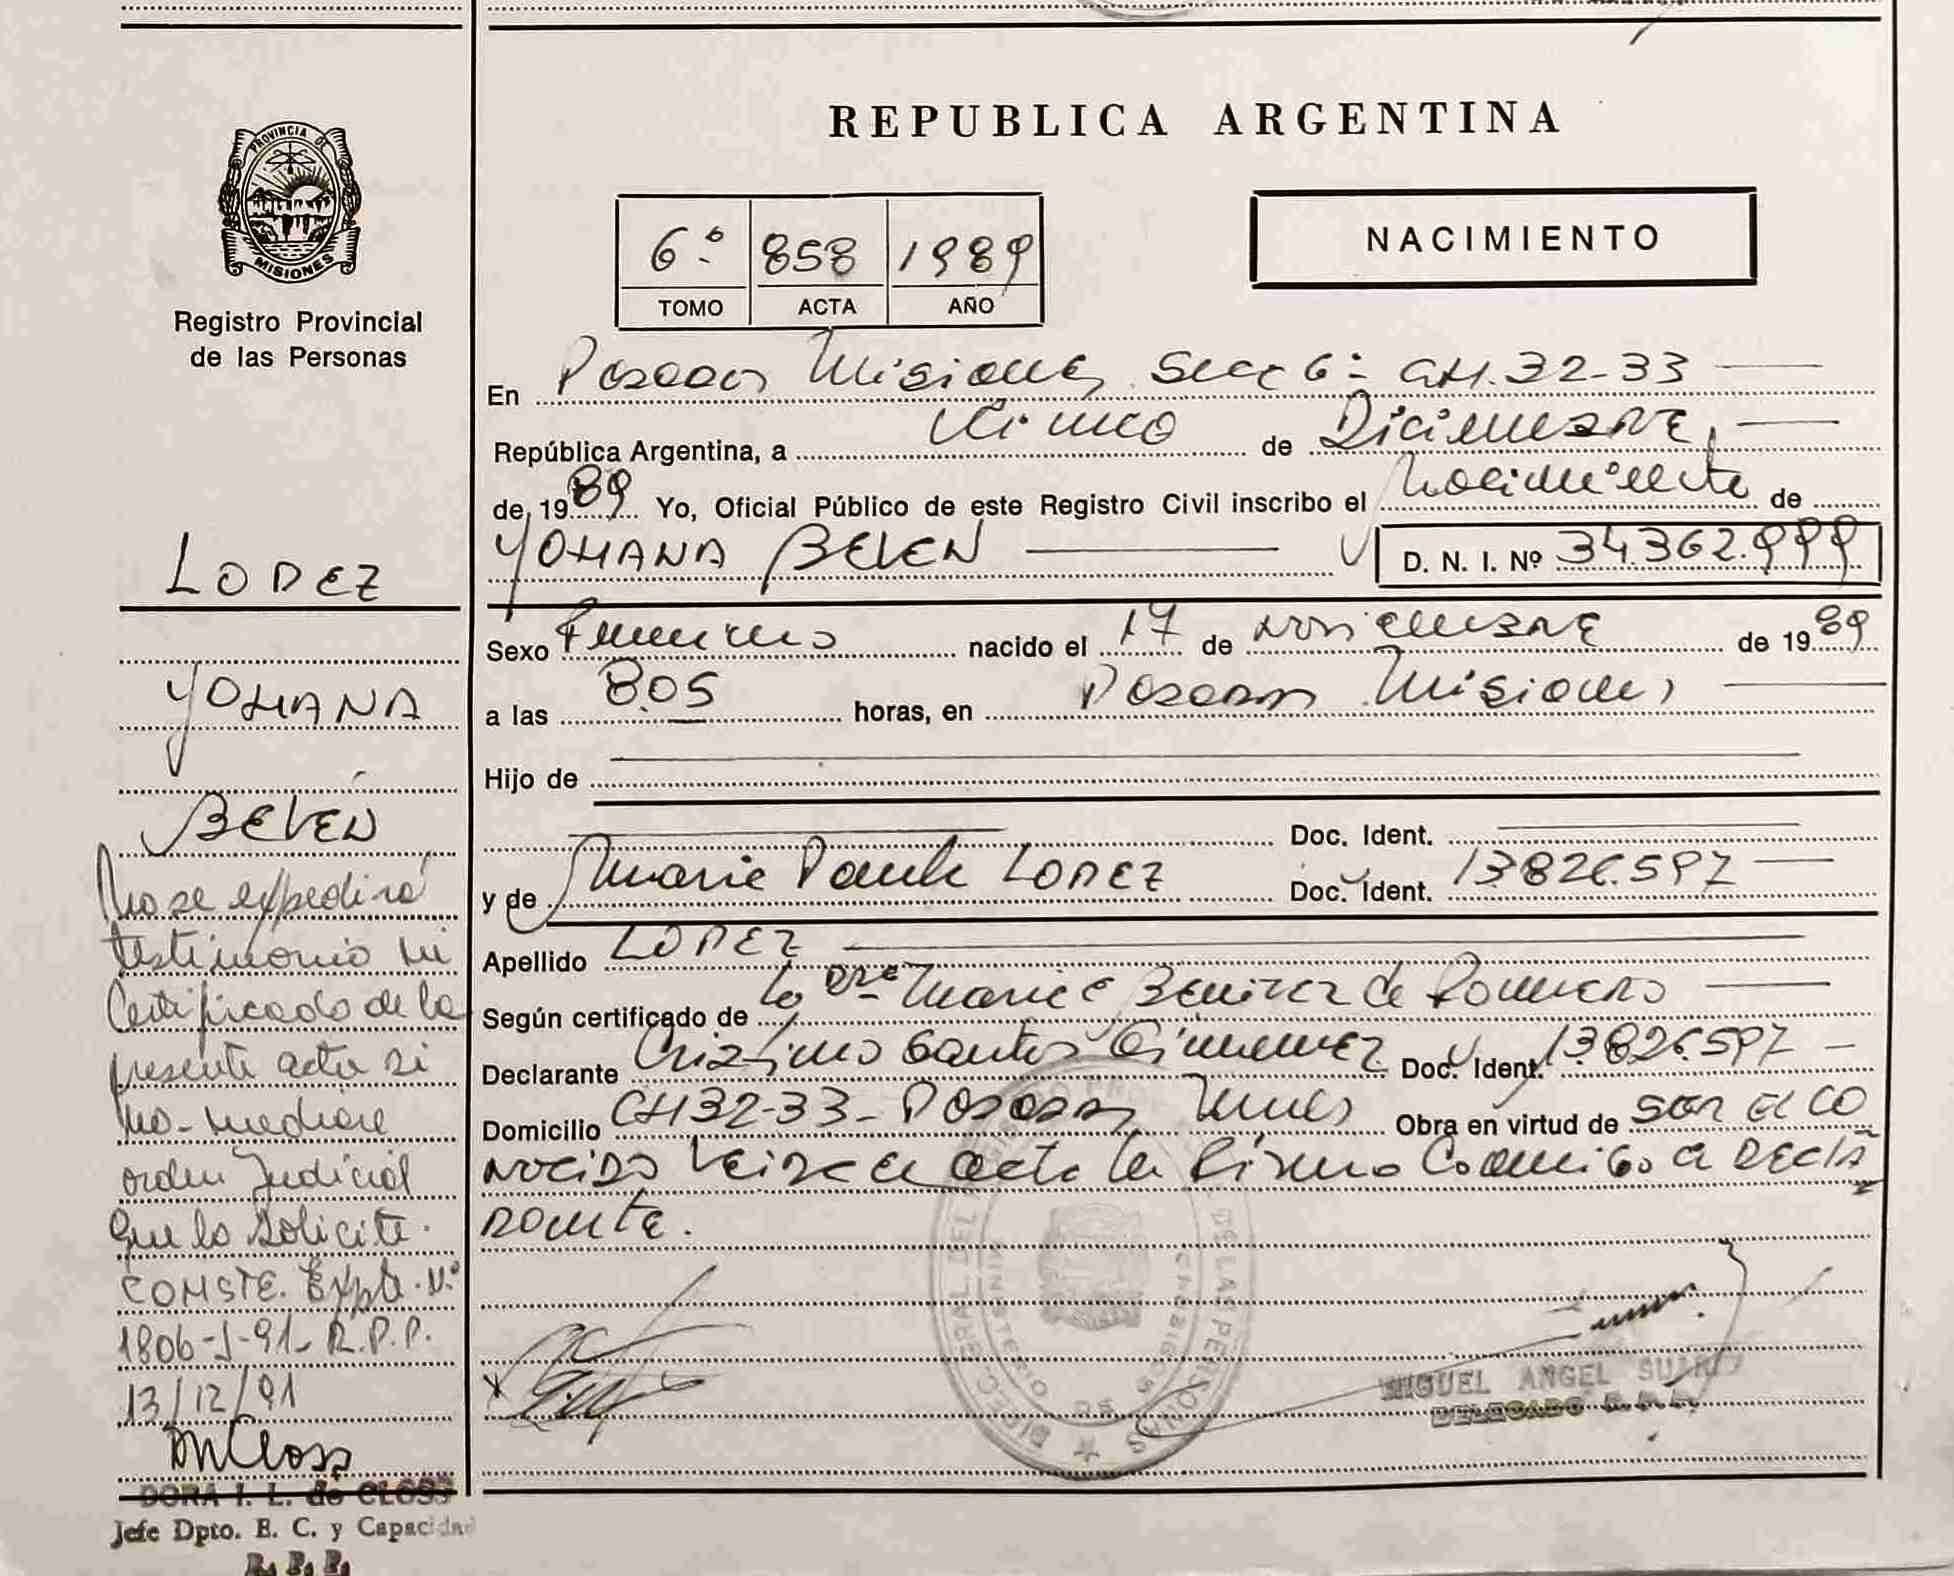 PROVINCIA DE
MISIONES
Registro Provincial
de las Personas
LOPEZ
YOHANA
BELÉN
No se expedirá
testimonio ni
Certificado de la
presente acta si
no-mediare
orden Judicial
que lo Solicite.
CONSTE. Expte. N.º
1806-J-91- R.P.P.
13/12/91
DORA I. L. de CLOSS
Jefe Dpto. E. C. y Capacidad
R. P. P.
REPUBLICA ARGENTINA
6º- 858 1989
TOMO ACTA AÑO
NACIMIENTO
En Posadas Misiones, Secc 6ª CH. 32-33
República Argentina, a cinco de Diciembre,
de 1989 Yo, Oficial Público de este Registro Civil inscribo el Nacimiento de
YOHANA BELEN D. N. I. Nº 34.362.999
Sexo Femenino nacido el 17 de noviembre de 1989
a las 8.05 horas, en Posadas Misiones
Hijo de
Doc. Ident.
y de LOPEZ Doc. Ident. 13.826.597
Apellido LOPEZ
Según certificado de la Dra Benitez de Romero
Declarante Santos Gimenez Doc. Ident. 13.826.597
Domicilio CH 32-33- Posadas Obra en virtud de SER EL CO
NOCIDO acta la Conmigo el DECLA
RANTE.
DIRECC. GRAL. DEL REGISTRO DE LAS PERSONAS
MIGUEL ANGEL SUAREZ
DELEGADO R.P.P.